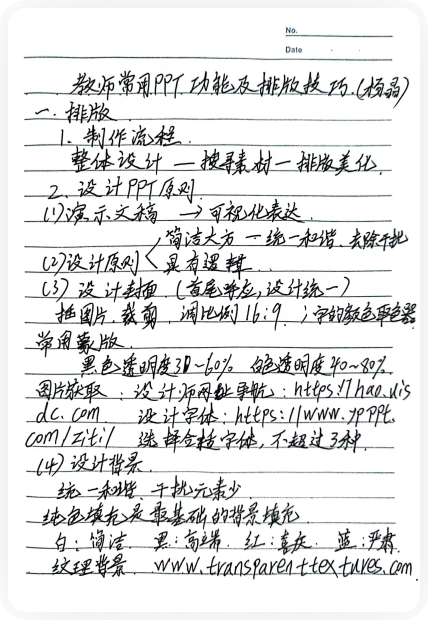 No.
Date
教师常用PPT功能及排版技巧.(杨晶)
一.排版
1.制作流程
整体设计—搜寻素材—排版美化
2.设计PPT原则
(1)演示文稿 → 可视化表达.
简洁大方—统一和谐.去除干扰
(2)设计原则<具有逻辑..
(3)设计封面.(首尾呼应,设计统一)
插图片.裁剪.调比例16:9.;字的颜色取色器
常用蒙版.
黑色透明度30~60% 白色透明度40~80%.
图片获取:设计师网址导航:https://hao.uis
dc.com 设计字体:https://www.ypppt.
com/ziti/ 选择合适字体,不超过3种.
(4)设计背景.
统一和谐.干扰元素少.
纯色填充是最基础的背景填充
白:简洁.黑:高端.红:喜庆.蓝:严肃.
纹理背景 www.transparenttextures.com